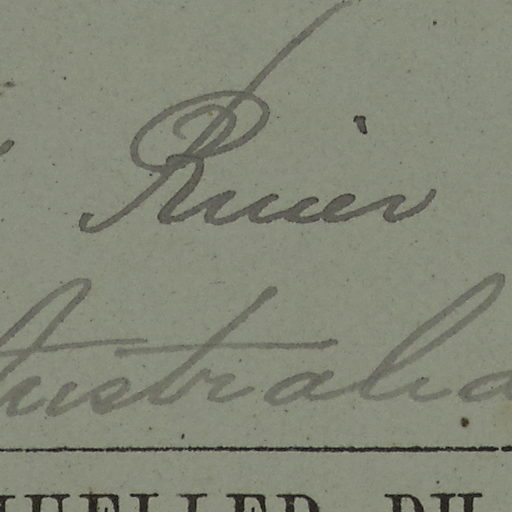 River
Australia
MUELLER, PH